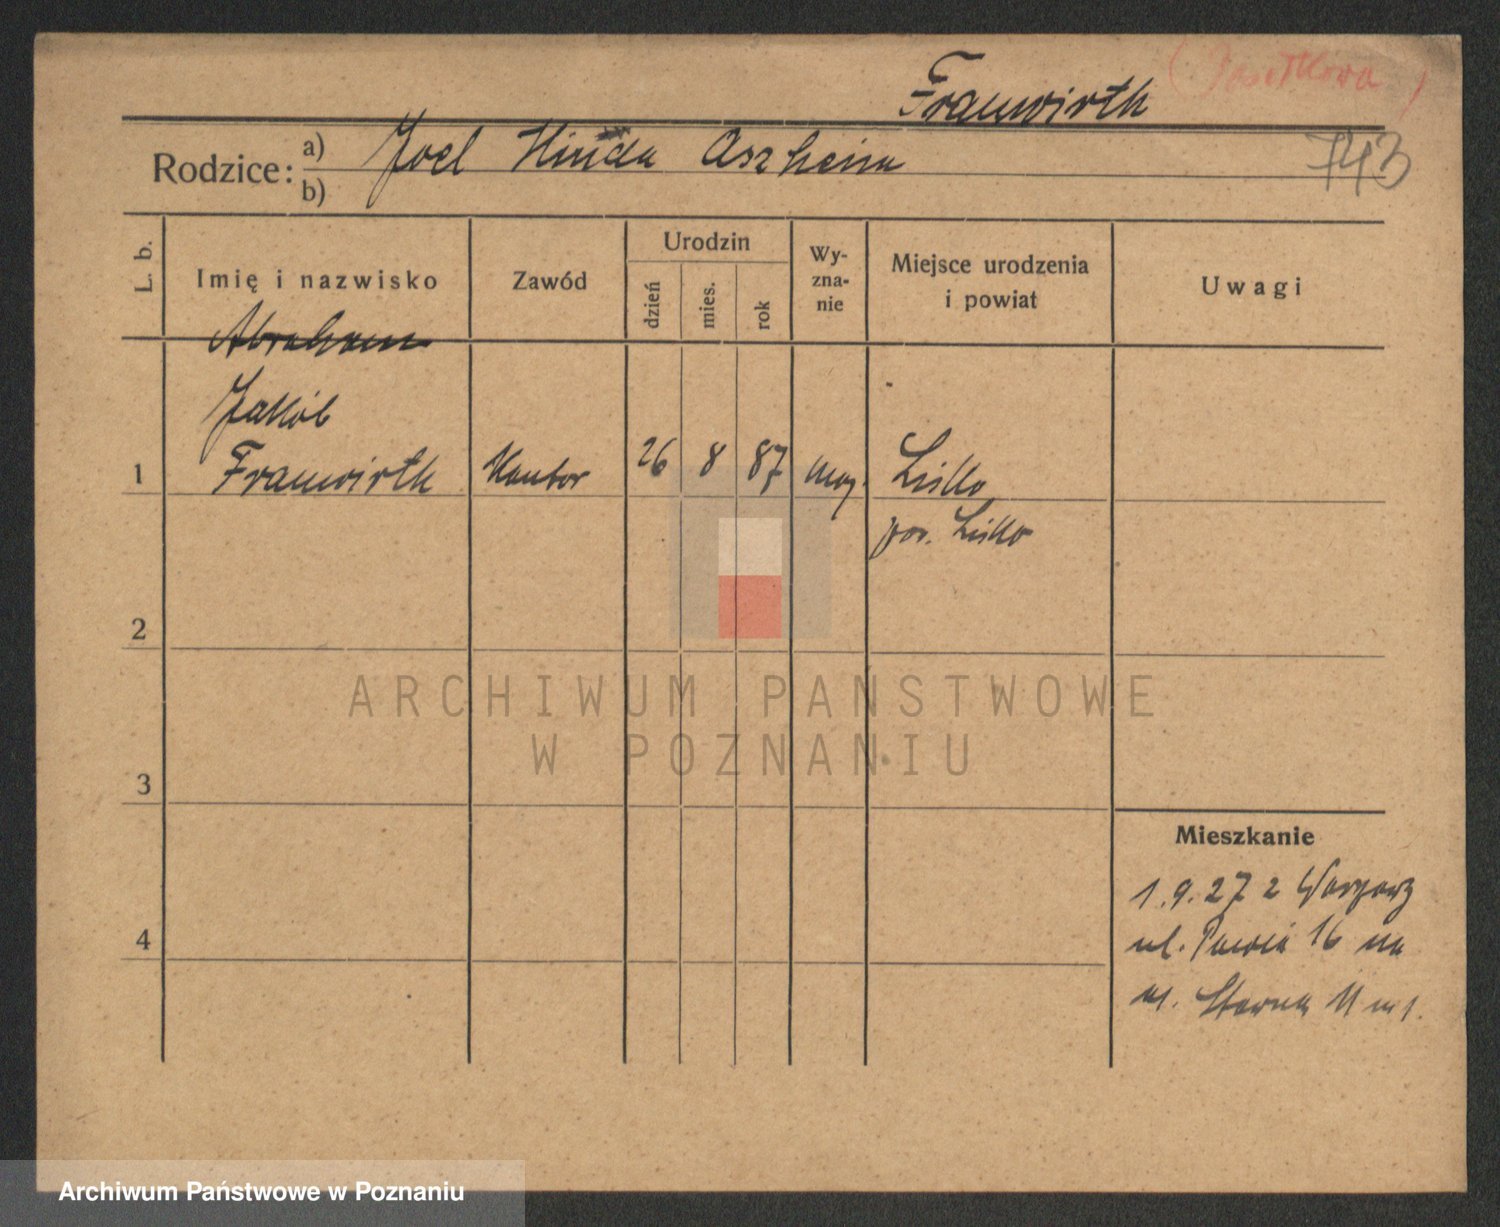 Frauwirth
743
Rodzice: a) Joel Hinda Aszheim
b)
L. b.
Imię i nazwisko
Zawód
Urodzin
dzień
mies.
rok
Wy-
zna-
nie
Miejsce urodzenia
i powiat
Uwagi
Abraham
Jakób
1 Frauwirth Kantor 26 8 87 moj. Lisko
pow. Lisko
2
3
4
Mieszkanie
1.9.27 z Warszawy
ul. Pawia 16 na
ul. Stawna 11 m 1.
ARCHIWUM PAŃSTWOWE
W POZNANIU
Archiwum Państwowe w Poznaniu